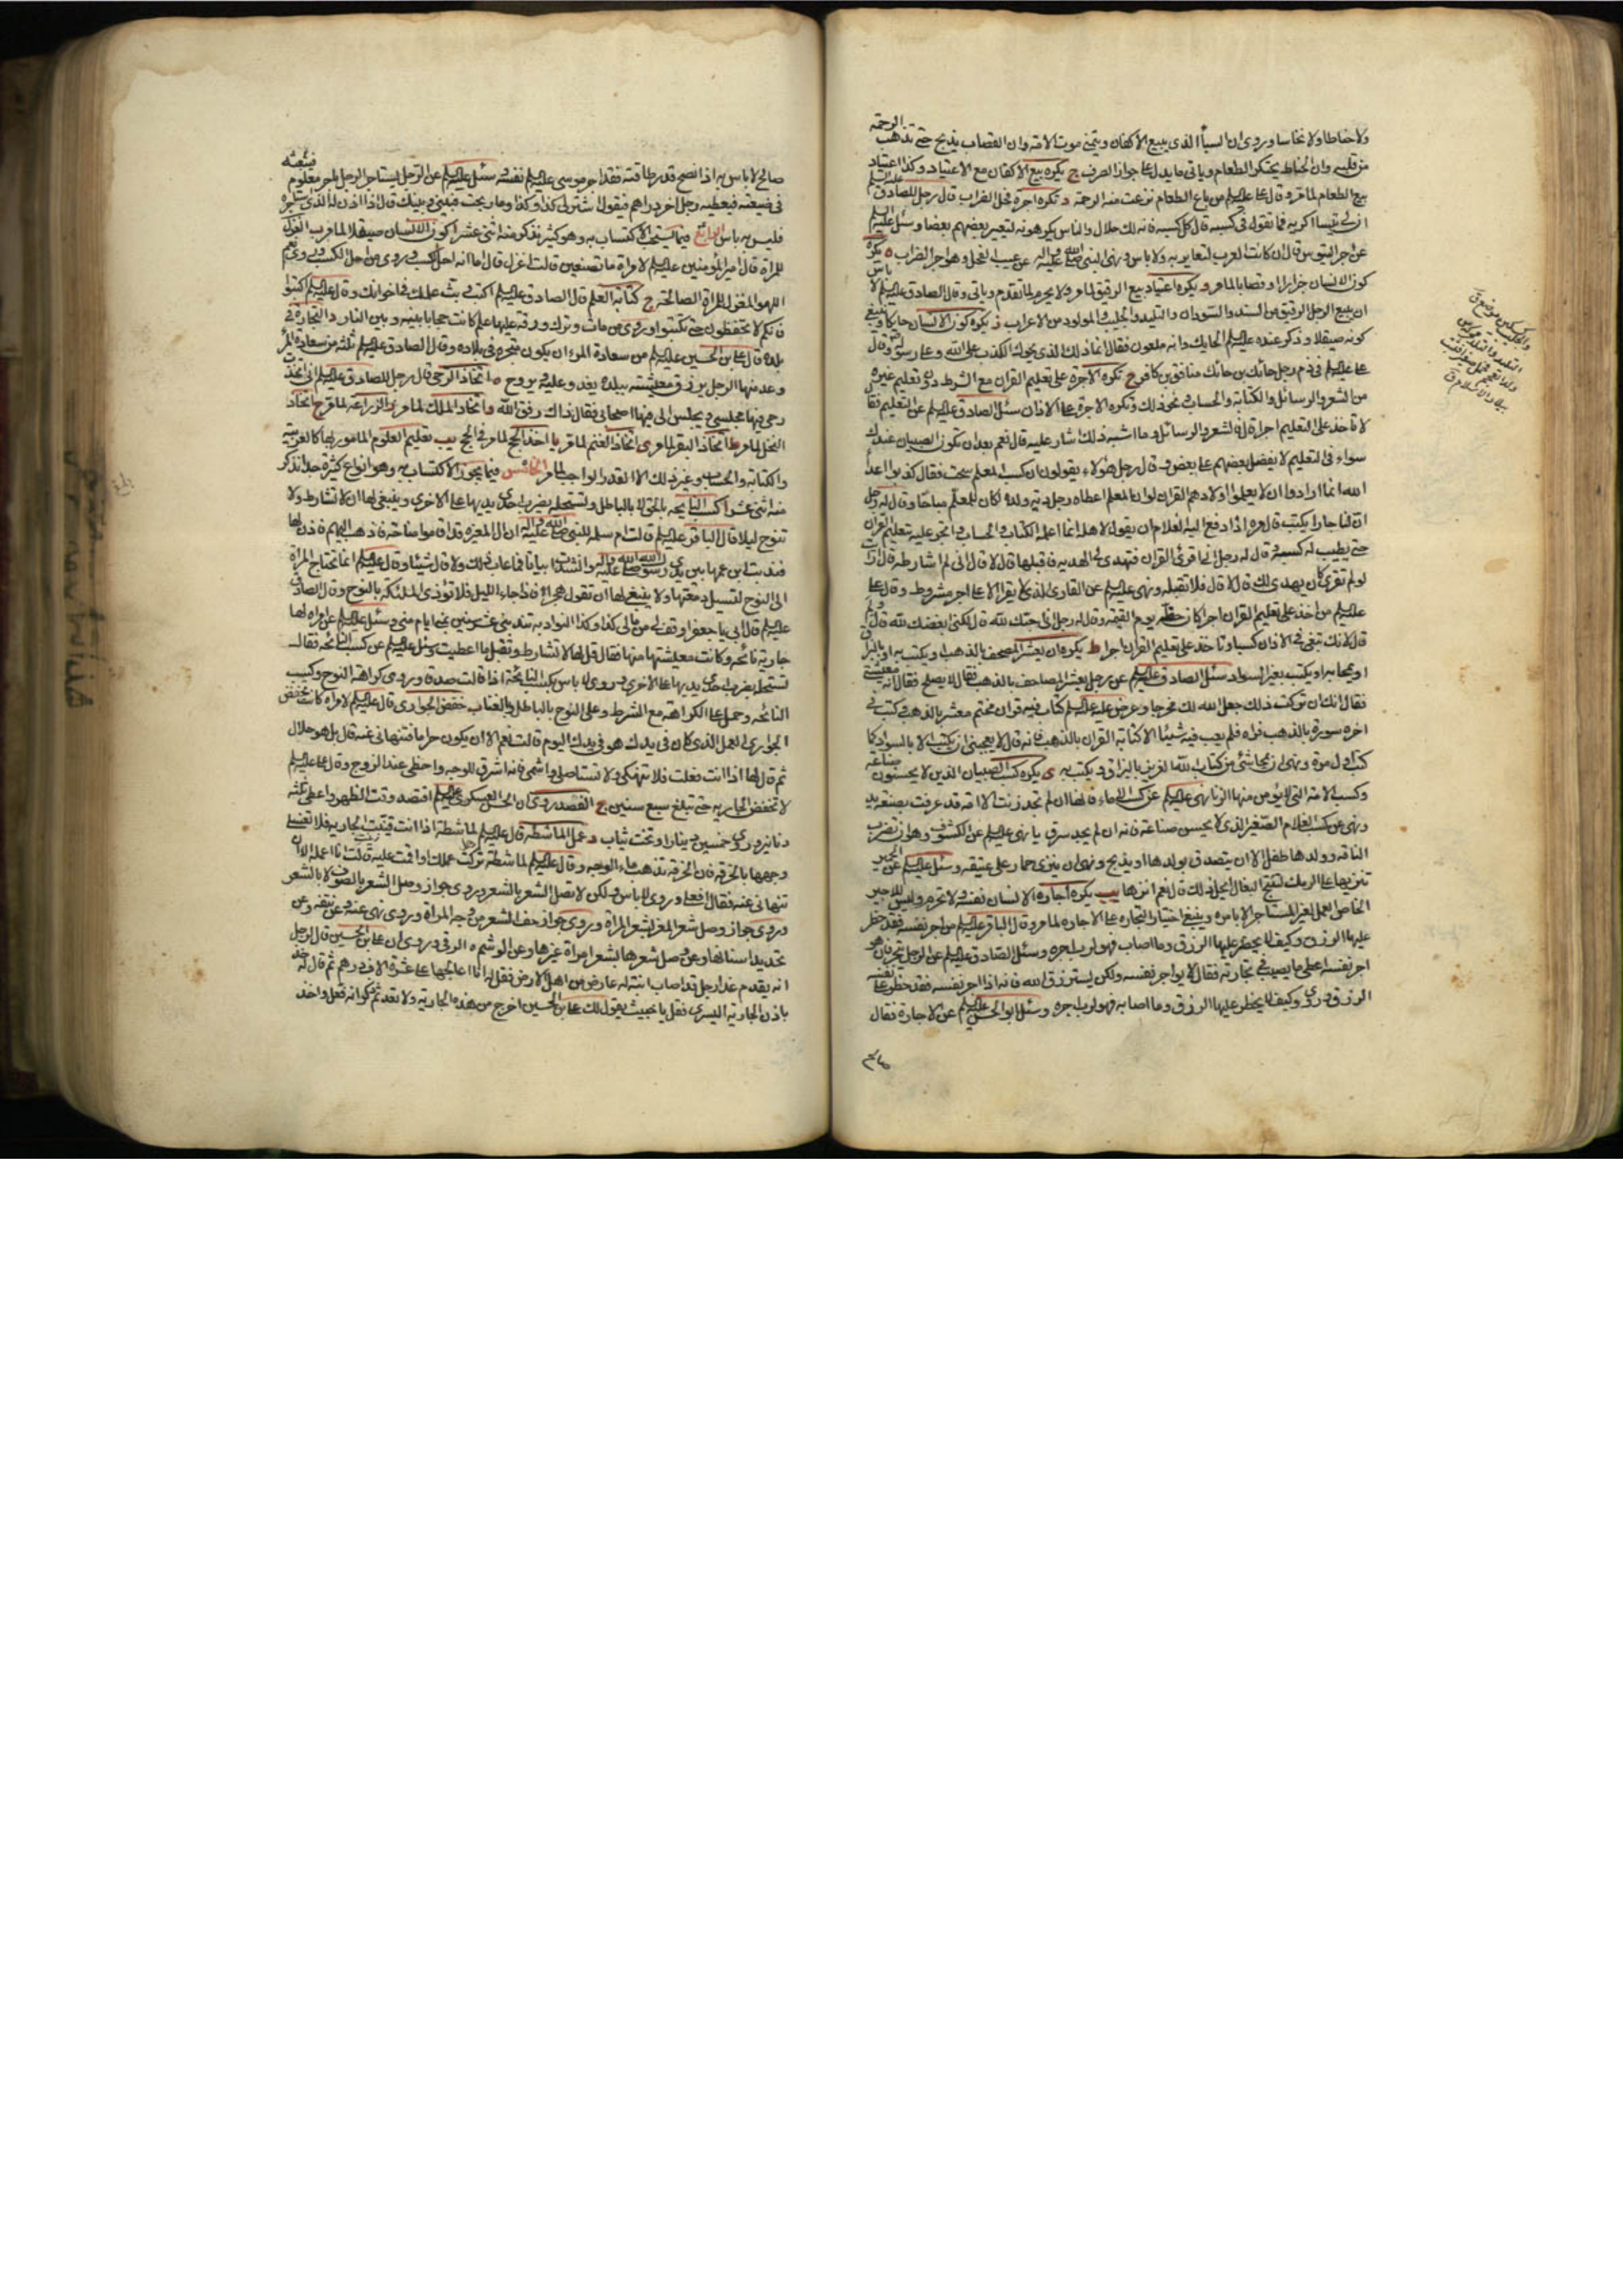 ولا حناطا ولا نخاسا وروي ان السبأ الذي يبيع الاكفان ويتمنى موت الامة وان القصاب يذبح حتى تذهب الرحمة
من قلبه وان الحناط يحتكر الطعام وياتي ما يدل على جواز الصرف ج يكره بيع الاكفان مع الاعتياد وكذا اعتياد
بيع الطعام لما مر وقال علي عليه السلام من باع الطعام نزعت منه الرحمة د تكره اجرة فحل الضراب قال رجل للصادق عليه السلام
ان لي تيسا اكريه فما تقول في كسبه قال كل كسبه فانه لك حلال والناس يكرهونه لتعيير بعضهم بعضا وسئل عليه السلام
عن اجر التيوس قال ان كانت العرب لتعاير به ولا باس ونهى النبي صلى الله عليه واله عن عسيب الفحل وهو اجر الضراب ه يكره
كون الانسان جزارا وقصابا لما مر و يكره اعتياد بيع الرقيق لما مر ولا يحرم لما تقدم وياتي وقال الصادق عليه السلام لا باس
ان يبيع الرجل الرقيق من السند والسودان والتليد والجليب والمولود من الاعراب ز يكره كون الانسان حايكا وينبغي
كونه صيقلا وذكر عنده عليه السلام الحايك وانه ملعون فقال انما ذلك الذي يحوك الكذب على الله وعلى رسوله وقال
علي عليه السلام في ذم رجل حائك بن حائك منافق بن كافر ح تكره الاجرة على تعليم القران مع الشرط دون تعليم غيره
من الشعر والرسائل والكتابة والحساب ونحو ذلك وتكره الاجرة على الاذان سئل الصادق عليه السلام عن التعليم فقال
لا تاخذ على التعليم اجرا قال فالشعر والرسائل وما اشبه ذلك اشارط عليه قال نعم بعد ان تكون الصبيان عندك
سواء في التعليم لا يفضل بعضهم على بعض وقال رجل هؤلاء يقولون ان كسب المعلم سحت فقال كذبوا اعداء
الله انما ارادوا ان لا يعلموا اولادهم القران لو ان المعلم اعطاه رجل دية ولده لكان للمعلم مباحا وقال له رجل
ان لنا جارا يكتب قال مره اذا دفع اليه الغلام ان يقول لاهله انما اعلمه الكتاب والحساب واتجر عليه بتعليم القران
حتى يطيب له كسبه وقال له رجل اني اقرئ القران فتهدى الي الهدية فاقبلها قال لا قال اني لم اشارطه قال ارايت
لو لم تقرئه كان يهدى لك قال لا قال فلا تقبله ونهى عليه السلام عن القاري الذي لا يقرا الا على اجر مشروط وقال علي
عليه السلام من اخذ على تعليم القران اجرا كان حظه يوم القيمة وقال له رجل اني احبك لله قال لكني ابغضك لله قال ولم
قال لانك تبغي في الاذان كسبا وتاخذ على تعليم القران اجرا ط يكره ان يعشر المصحف بالذهب او يكتب به او بالبزاق
او يمحا به او يكتب بغير السواد سئل الصادق عليه السلام عن رجل يعشر المصاحف بالذهب فقال لا يصلح فقال انه معيشتي
فقال انك ان تركت ذلك جعل الله لك مخرجا وعرض عليه عليه السلام كتاب فيه قران مختم معشر بالذهب وكتب في
اخره سورة بالذهب فراه فلم يعب فيه شيئا الا كتابة القران بالذهب فانه قال لا يعجبني ان يكتب الا بالسواد كما
كتب اول مرة ونهى ان يمحا شئ من كتاب الله العزيز بالبزاق او يكتب به ى يكره كسب الصبيان الذين لا يحسنون صناعة
وكسب الامة التي لا يؤمن منها الزنا نهى عليه السلام عن كسب الاماء فانها ان لم تجد زنت الا امة قد عرفت بصنعة يد
ونهى عن كسب الغلام الصغير الذي لا يحسن صناعة فانه ان لم يجد سرق يا نهى عليه السلام عن الكشوف وهو ان تضرب
الناقة وولدها طفل الا ان يتصدق بولدها او يذبح ونهى ان ينزى حمار على عتيقة وسئل عليه السلام عن الحمير
تنزيها على الرمك لتنتج البغال ايحل ذلك قال نعم انزها يب يكره اجارة الانسان نفسه ولا تحرم وليس للاجير
الخاص العمل لغير المستاجر الا باذنه وينبغي اختيار التجارة على الاجارة لما مر وقال الباقر عليه السلام من اجر نفسه فقد حظر
عليها الرزق وكيف لا يحظر عليها الرزق وما اصاب فهو لرب اجره وسئل الصادق عليه السلام عن الرجل يتجر فان هو
اجر نفسه اعطي ما يصيب في تجارته فقال لا يواجر نفسه ولكن يسترزق الله فانه اذا اجر نفسه فقد حظر على نفسه
الرزق وروي وكيف لا يحظر عليها الرزق وما اصابه فهو لرب اجره وسئل ابو الحسن عليه السلام عن الاجارة فقال
صالح لا باس به اذا نصح قدر طاقته فقد اجر موسى عليه السلام نفسه وسئل عليه السلام عن الرجل يستاجر الرجل باجر معلوم فيبعثه
في ضيعته فيعطيه رجل اخر دراهم فيقول اشتر لي كذا وكذا وما ربحت فبيني وبينك قال اذا اذن له الذي استاجره
فليس به باس الرابع فيما يستحب الاكتساب به وهو كثير نذكر منه اثني عشر ا كون الانسان صيقلا لما مر ب الغزل
للمراة قال امير المؤمنين عليه السلام لامراة ما تصنعين قالت اغزل قال اما انه احل الكسب وروي من احل الكسب وروي نعم
اللهو المغزل للمراة الصالحة ج كتابة العلم قال الصادق عليه السلام اكتب وبث علمك في اخوانك وقال عليه السلام اكتبوا
فانكم لا تحفظون حتى تكتبوا وروي من مات وترك ورقة عليها علم كانت حجابا بينه وبين النار د التجارة في
بلده قال علي بن الحسين عليه السلام من سعادة المرء ان يكون متجره في بلاده وقال الصادق عليه السلام ثلثة من سعادة المرء
وعد منها الرجل يرزق معيشته ببلده يغدو عليه ويروح ه اتخاذ الرحى قال رجل للصادق عليه السلام اني اتخذت
رحى فيها مجلسي ويجلس الي فيها اصحابي فقال ذاك رفق الله و اتخاذ الملك لما مر ز الزراعة لما مر ح اتخاذ
النخل لما مر ط اتخاذ البقر لما مر ى اتخاذ الغنم لما مر يا اخذ الحج لما مر في الحج يب تعليم العلوم المامور بها كالعربية
والكتابة والحساب وغير ذلك الا القدر الواجب لما مر الخامس فيما يجوز الاكتساب به وهو انواع كثيرة جدا نذكر
منه اثني عشر ا كسب النايحة بالحق لا بالباطل وتستحله بضرب احدى يديها على الاخرى وينبغي لها ان لا تشارط ولا
تنوح ليلا قال الباقر عليه السلام قالت ام سلمه للنبي صلى الله عليه واله ان ال المغيرة قد اقاموا مناحة فاذهب اليهم فاذن لها
فندبت ابن عمها بين يدي رسول الله صلى الله عليه واله وانشدت ابياتا فما عاب ذلك ولا قال شيئا وقال عليه السلام انما تحتاج المراة
الى النوح لتسيل دمعتها ولا ينبغي لها ان تقول هجرا فاذا جاء الليل فلا تؤذي الملئكة بالنوح وقال الصادق
عليه السلام قال ابي يا جعفر اوقف لي من مالي كذا وكذا النوادب تندبني عشر سنين بمنى ايام منى وسئل عليه السلام عن امراة لها
جارية نائحه وكانت معيشتها منها فقال قل لها لا تشارط وتقبل ما اعطيت وسئل عليه السلام عن كسب النائحه فقال
تستحله بضرب احدى يديها على الاخرى وروي لا باس بكسب النائحة اذا قالت صدقا وروي كراهة النوح وكسب
النائحه وحمل على الكراهة مع الشرط وعلى النوح بالباطل والغناء ب خفض الجواري قال عليه السلام لامراة كانت تخفض
الجواري العمل الذي كان في يدك هو في يدك اليوم قالت نعم الا ان يكون حراما فتنهاني عنه قال بل هو حلال
ثم قال لها اذا انت فعلت فلا تنهكي ولا تستاصلي واشمي فانه اشرق للوجه واحظى عند الزوج وقال علي عليه السلام
لا تخفض الجارية حتى تبلغ سبع سنين ج الفصد روي ان الحسن العسكري عليه السلام افتصد وقت الظهر واعطى ثلثة
دنانير وروي خمسين دينارا وتخت ثياب د عمل الماشطة قال عليه السلام لماشطة اذا انت قينت الجارية فلا تغسلي
وجهها بالخرقة فان الخرقة تذهب بماء الوجه وقال عليه السلام لماشطة تركت عملك او اقمت عليه قالت انا اعمله الا ان
تنهاني عنه فقال افعلي وروي لا باس ولكن لا تصل الشعر بالشعر وروي جواز وصل الشعر بالصوف لا بالشعر
وروي جواز وصل شعر المعز بشعر المراة وروي جواز حف الشعر من وجه المراة وروي نهى عنه وعن نتفه وعن
تحديد اسنانها وعن وصل شعرها بشعر امراة غيرها وعن الوشم ه الرقى وروي ان علي بن الحسين قال لرجل
انه يقدم غدا رجل قد اصاب ابنته له عارض من اهل الارض فقل له انا اعالجها على عشرة الاف درهم ثم قال له خذ
باذن الجارية اليسرى فقل يا خبيث يقول لك علي بن الحسين اخرج من هذه الجارية ولا تعد ثم ذكر انه فعل واخذ